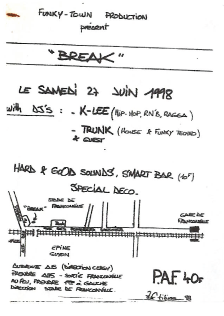 FUNKY-TOWN PRODUCTION
présent
"BREAK"
LE SAMEDI 27 JUIN 1998
with DJ'S : - K-LEE (HIP-HOP, RN'B, RAGGA)
- TRUNK (HOUSE & FUNKY TECHNO)
& GUEST
HARD & GOOD SOUNDS, SMART BAR (10F)
SPECIAL DECO.
GARE DE
"BREAK"
EPINE
GUYON
AUTOROUTE A15 (DIRECTION CERGY)
PRENDRE A115 - SORTIE FRANCONVILLE
AU FEU, PRENDRE 1ère A GAUCHE
DIRECTION FRANCONVILLE.
P.A.F. 40F